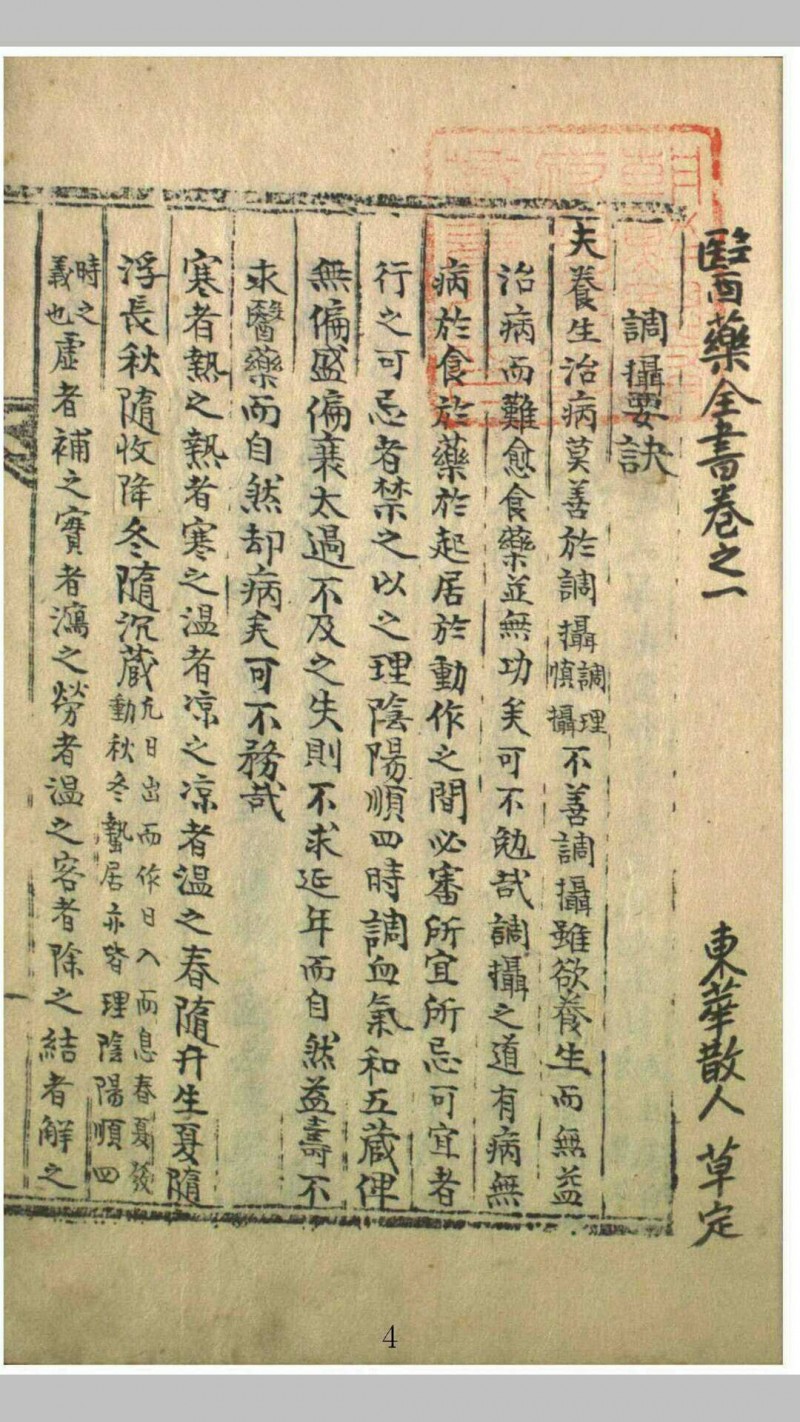 醫藥全書卷之一 東華散人 草定
調攝要訣
夫養生治病莫善於調攝調理慎攝不善調攝雖欲養生而無益
治病而難愈食藥並無功矣可不勉哉調攝之道有病無
病於食於藥於起居於動作之間必審所宜所忌可宜者
行之可忌者禁之以之理陰陽順四時調血氣和五蔵俾
無偏盛偏衰太過不及之失則不求延年而自然益壽不
求醫藥而自然却病矣可不務哉
寒者熱之熱者寒之温者凉之凉者温之春隨升生夏隨
浮長秋隨收降冬隨沉蔵凢日出而作日入而息春夏發動秋冬蟄居亦皆理陰陽順四
時之義也虚者補之實者瀉之勞者温之客者除之結者解之
4